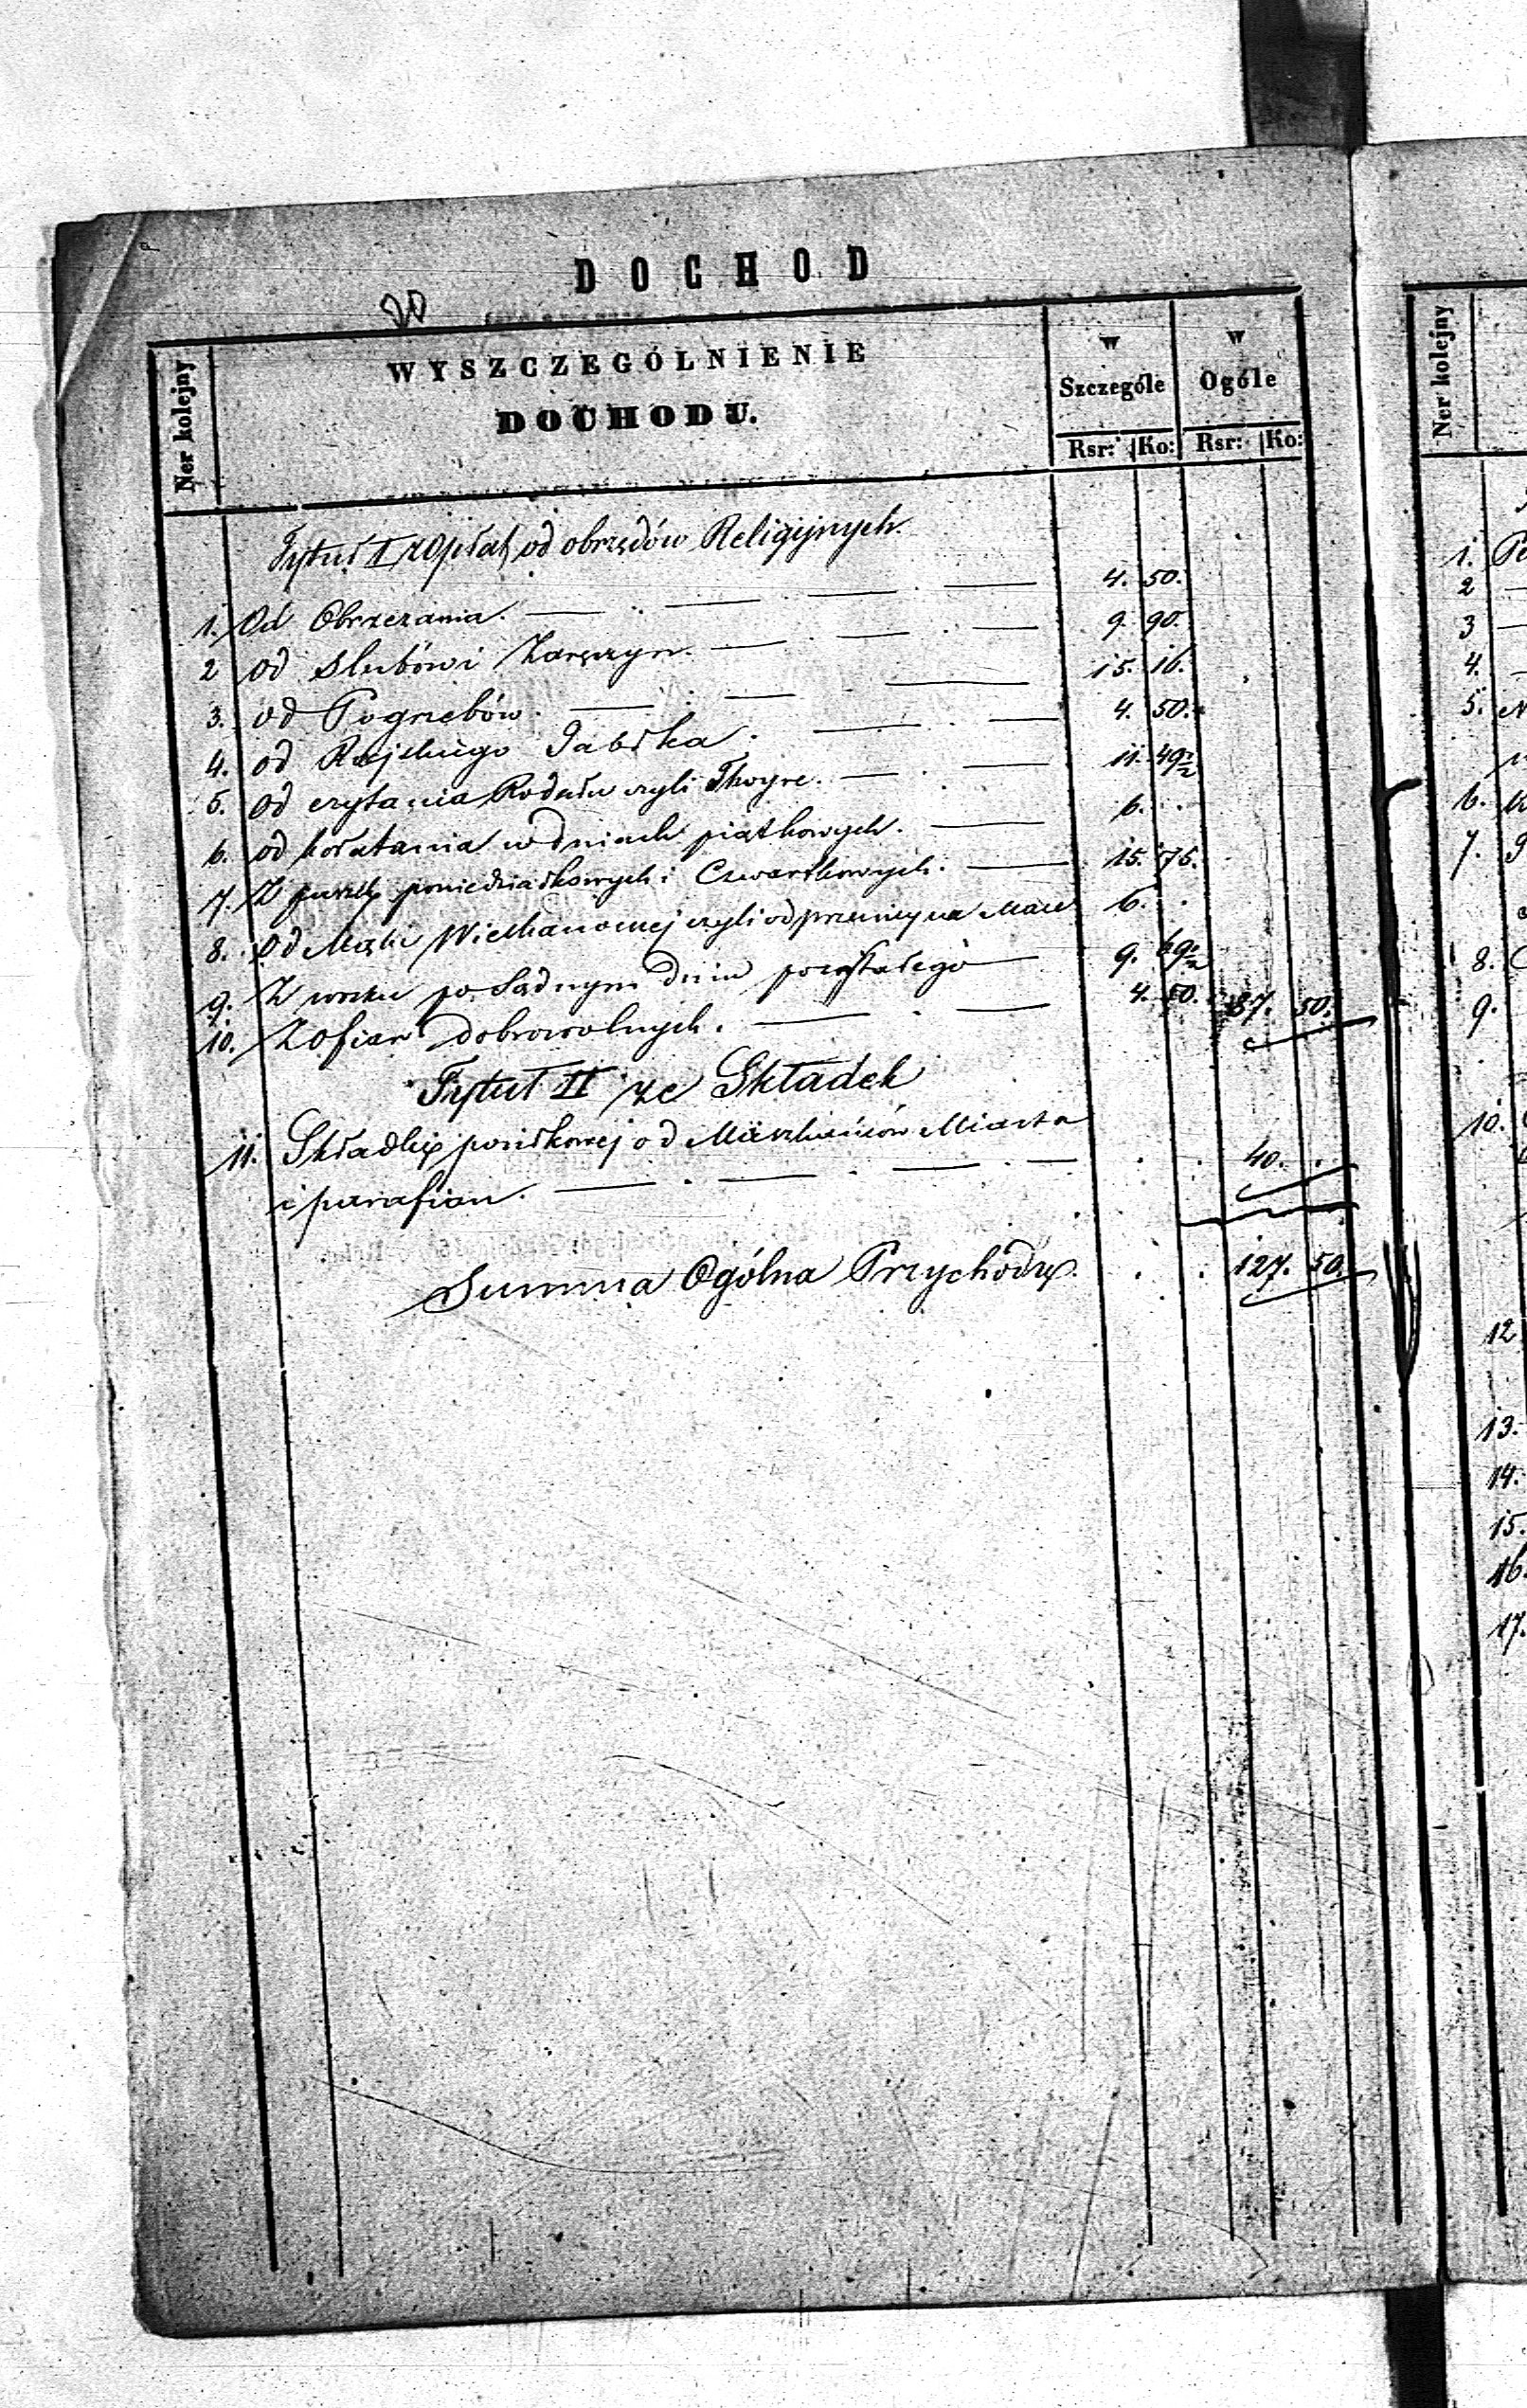 DOCHOD
20
Ner kolejny
WYSZCZEGÓLNIENIE
DOCHODU.
w Szczególe
w Ogóle
Rsr: Ko: Rsr: Ko:
Tytuł I z Opłat od obrzędów Religijnych.
1. Od Obrzezania. 4. 50.
2 od Slubów i Zaręczyn. 9. 90.
3. od Pogrzebów. 15. 16.
4. od Rajskiego Jabłka. 4. 50.
5. od czytania Rodału czyli Thoyre. 11. 49 1/2
6. od kołatania w dniach piątkowych. 6. .
7. Z puszki poniedziałkowych i Czwartkowych. 15. 75.
8. Od Mąki Wielkanocnej czyli od na Mace 6. .
9. Z wosku po Sądnym dniu pozostałego 9. 69 1/2
10. Z ofiar dobrowolnych. 4. 50. 87. 50.
Tytuł II ze Składek
11. Składki od Mieszkańców Miasta
i parafian. . . 40. .
Summa Ogólna Przychodu. . . 127. 50.
Ner kolejny
1.
2
3
4.
5.
6.
7.
8.
9.
10.
12
13.
14.
15.
16.
17.